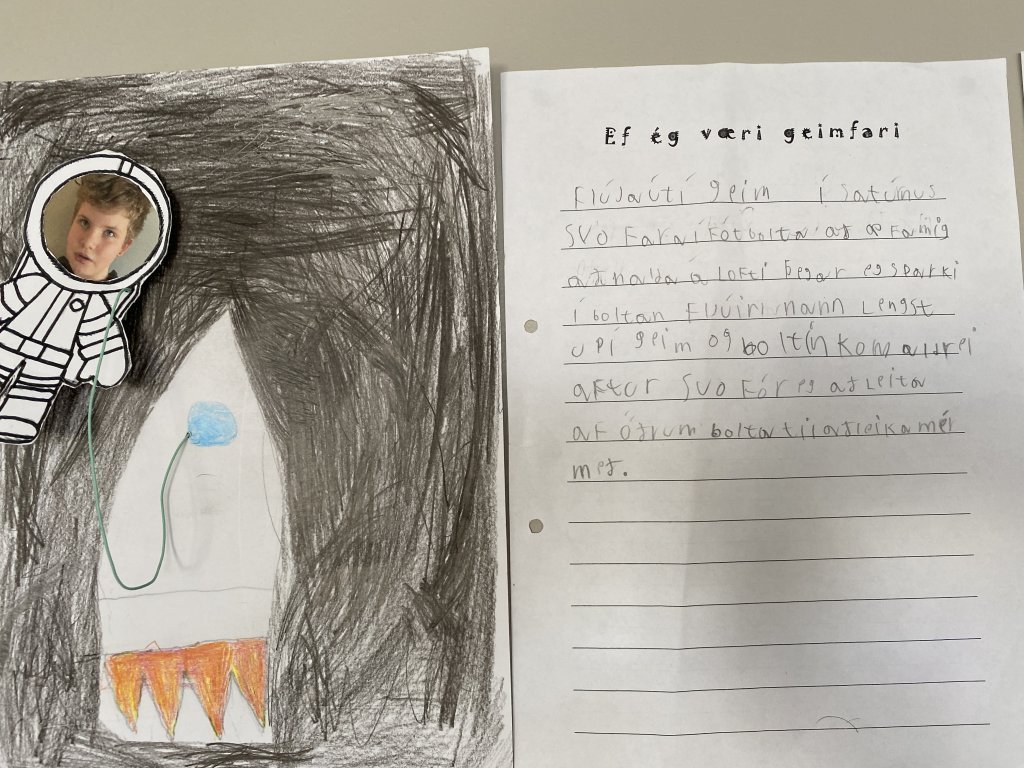 Ef ég væri geimfari
Flúgaútí geim í satúnus
svo faraí fótbolta að æfamig
aðhalda á lofti þegar eg sparki
í boltan flúirhann lengst
upí geim og boltin kom aldrei
aftur svo fór eg að leita
af öðrum bolta tilað leika mér
með.